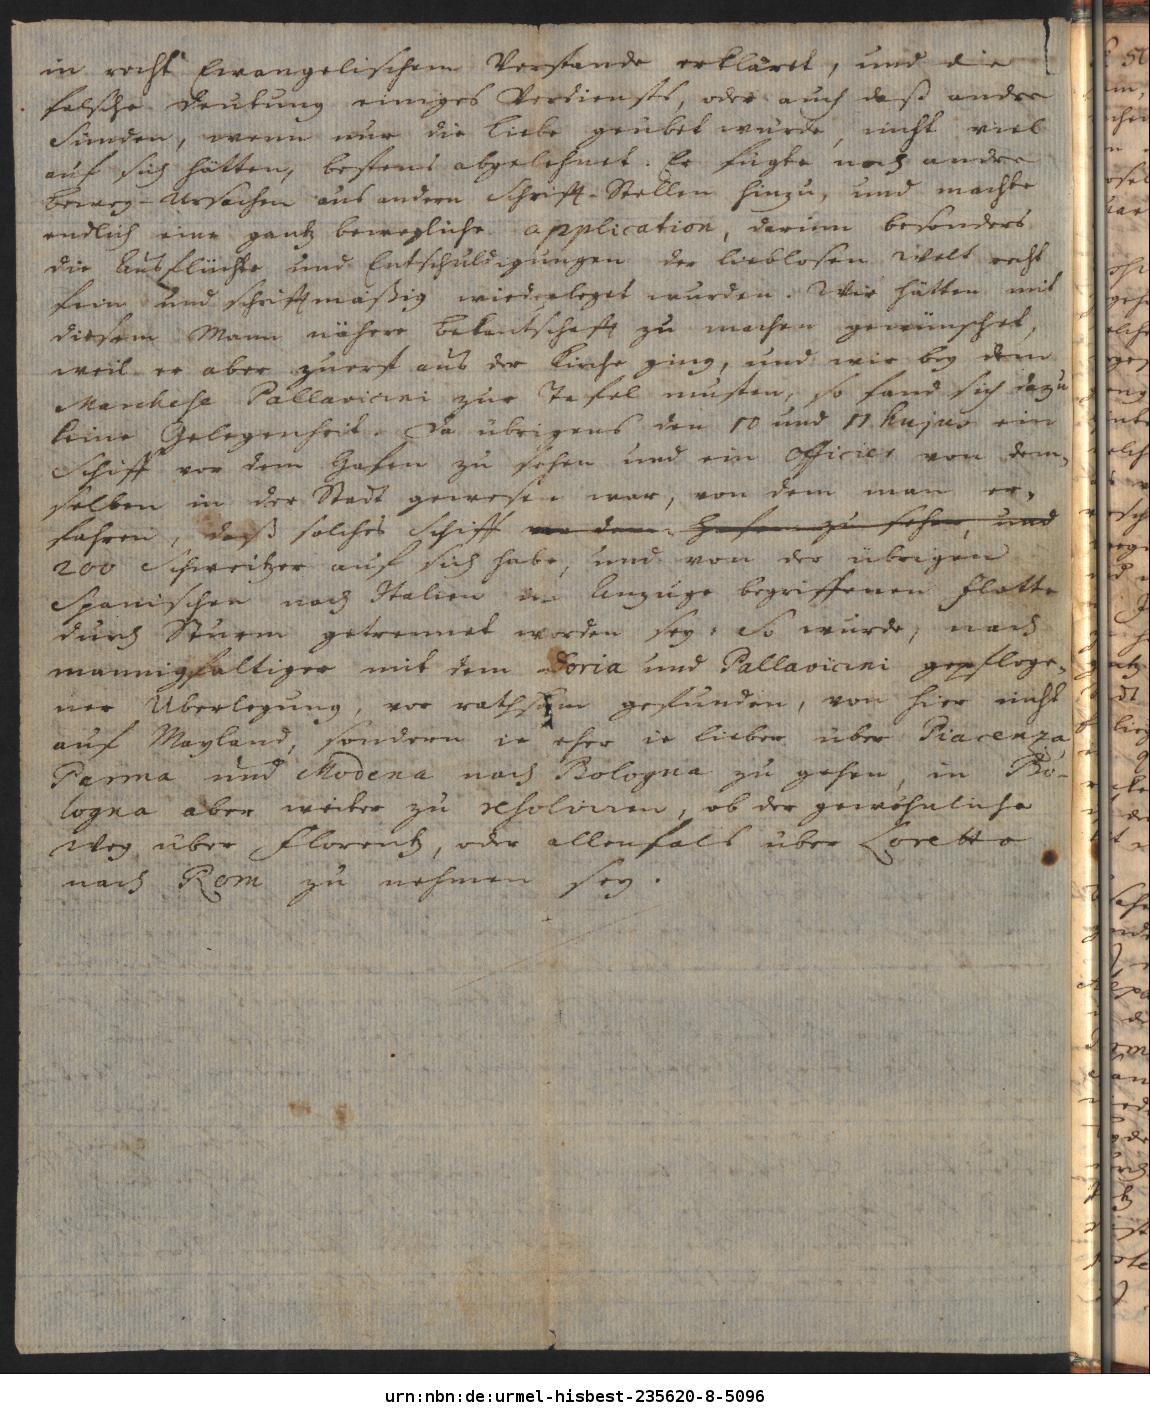 in recht Evangelischem Verstande erkläret, und die
falsche Deutung einiges Verdiensts, oder auch daß andre
Sünden, wenn nur die Liebe geübet würde, nicht viel
auf sich hätten, bestens abgelehnet. Er fügte noch andre
Beweg-Ursachen aus andern Schrifft-Stellen hinzu, und machte
endlich eine gantz bewegliche application, darinn besonders
die Ausflüchte und Entschuldigungen der lieblosen Welt recht
fein und schrifftmäßig wiederleget wurden. Wir hätten mit
diesem Mann nähere Bekantschafft zu machen gewünschet,
weil er aber zuerst aus der Kirche ging, und wir bey dem
Marchese Pallavicini zur Tafel musten, so fand sich dazu
keine Gelegenheit. Da übrigens den 10 und 11 hujus ein
Schiff vor dem Hafen zu sehen und ein Officier von dem-
selben in der Stadt gewesen war, von dem man er-
fahren, daß solches Schiff vor dem Hafen zu sehen, und
200 Schweitzer auf sich habe, und von der übrigen
Spanischen nach Italien im Anzuge begriffenen Flotte
durch Sturm getrennet worden sey: So wurde, nach
mannigfaltiger mit dem Doria und Pallavicini gepfloge-
ner Überlegung, vor rathsam gefunden, von hier nicht
auf Mayland, sondern ie eher ie lieber über Piacenza,
Parma und Modena nach Bologna zu gehen, in Bo-
logna aber weiter zu resolviren, ob der gewöhnliche
Weg über Florentz, oder allenfals über Loretto
nach Rom zu nehmen sey.
urn:nbn:de:urmel-hisbest-235620-8-5096